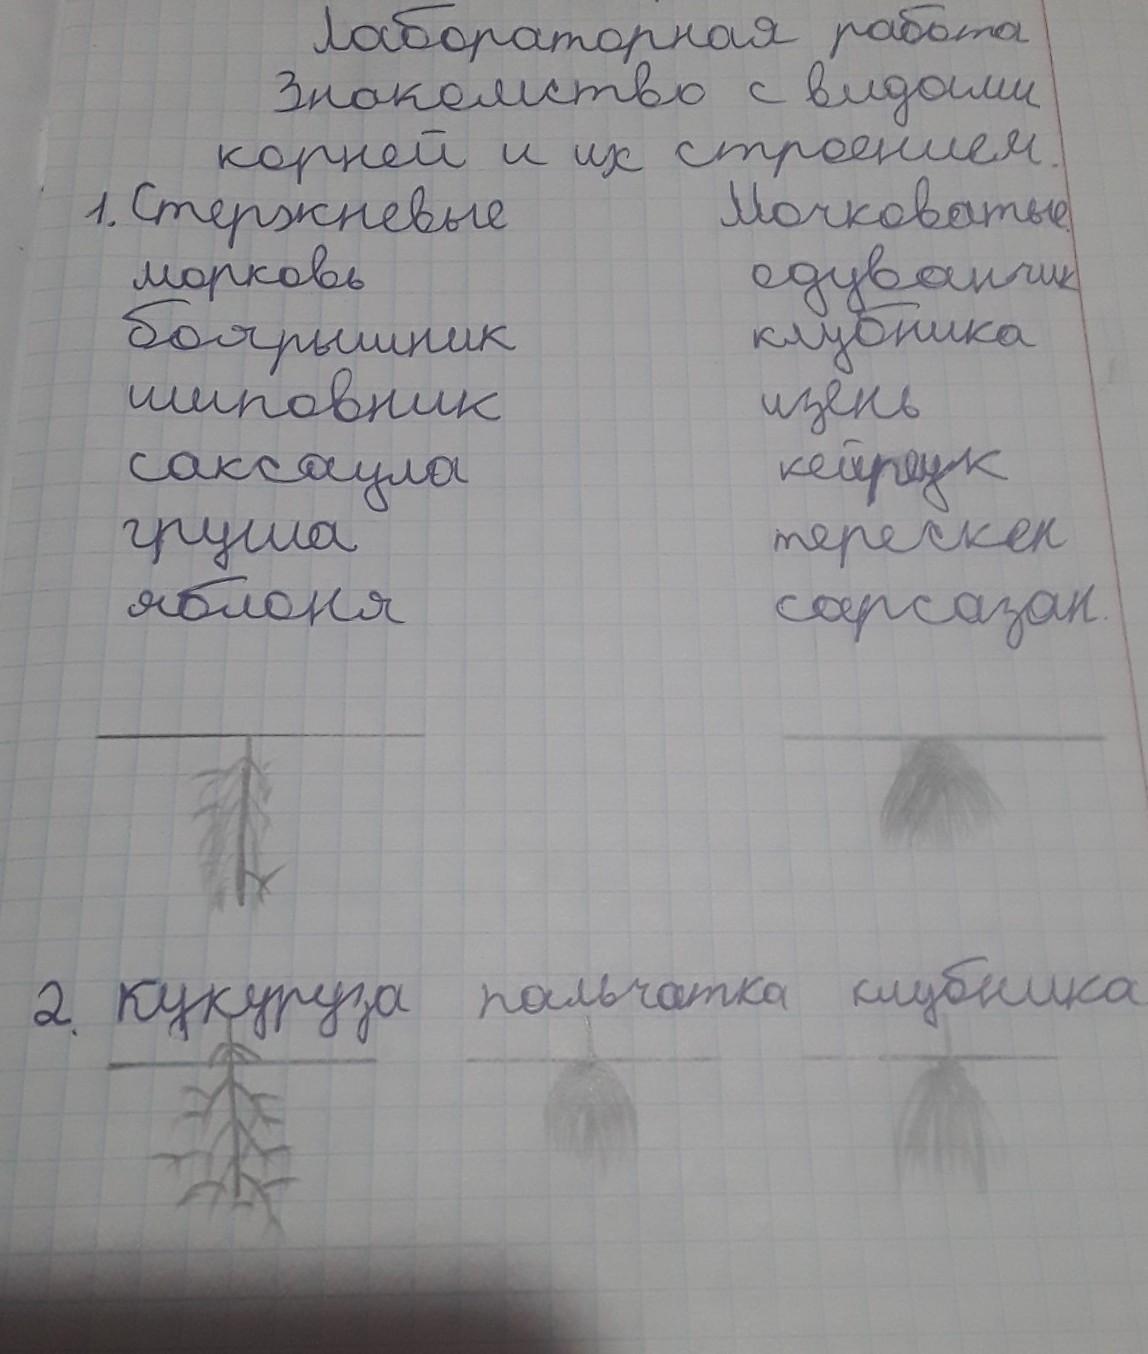 Лабораторная работа
Знакомство с видами
корней и их строением.
1. Стержневые Мочковатые
морковь одуванчик
боярышник клубника
шиповник изень
саксаула кейреук
груша терескен
яблоня сарсазан.
2. Кукуруза пальчатка клубника